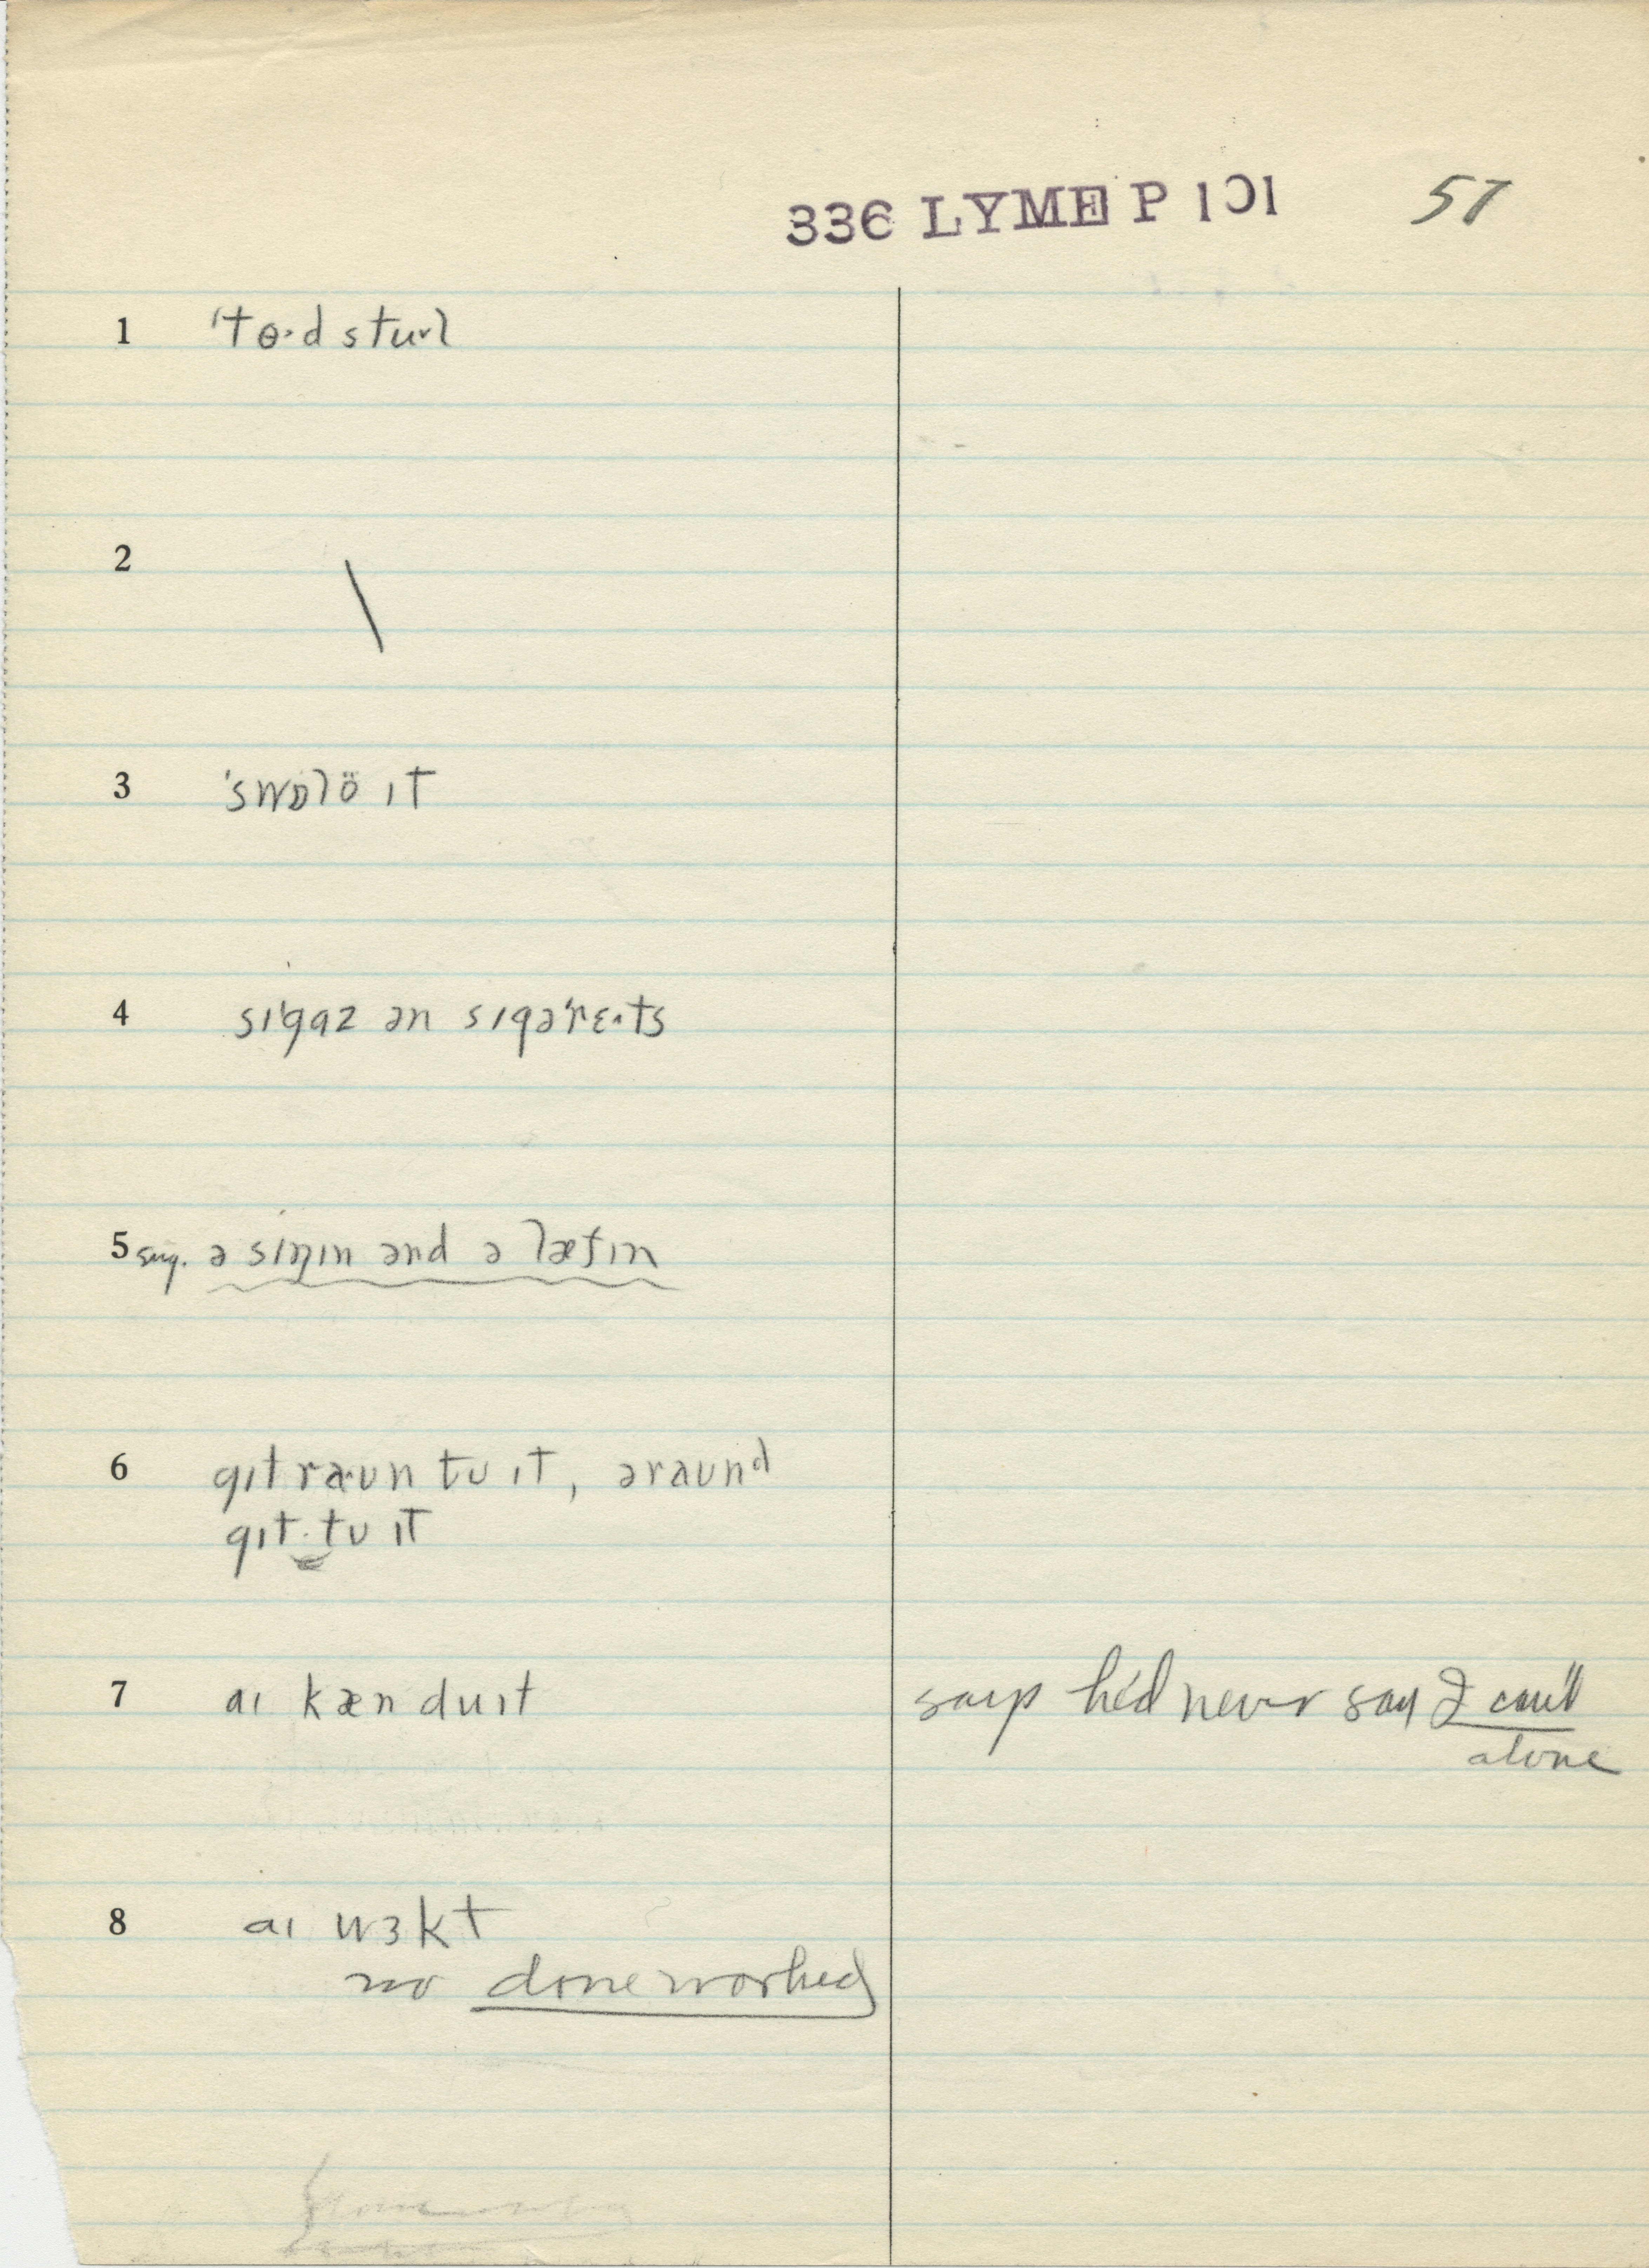 336 LYME P 101 57
1 ˈtɵ·d stu˞l
2 \
3 ˈswɒlö ɪt
4 sɪˈgaz ən sɪgəˈrɛ·ts
5 sug. ə sɪŋɪn ənd ə læfɪn
6 gɪt ræ·ʊn tʊ ɪt, əraʊnd
gɪt tʊ ɪt
7 aɪ kæn du ɪt says he'd never say I can't
alone
8 aɪ wɜkt
no done worked